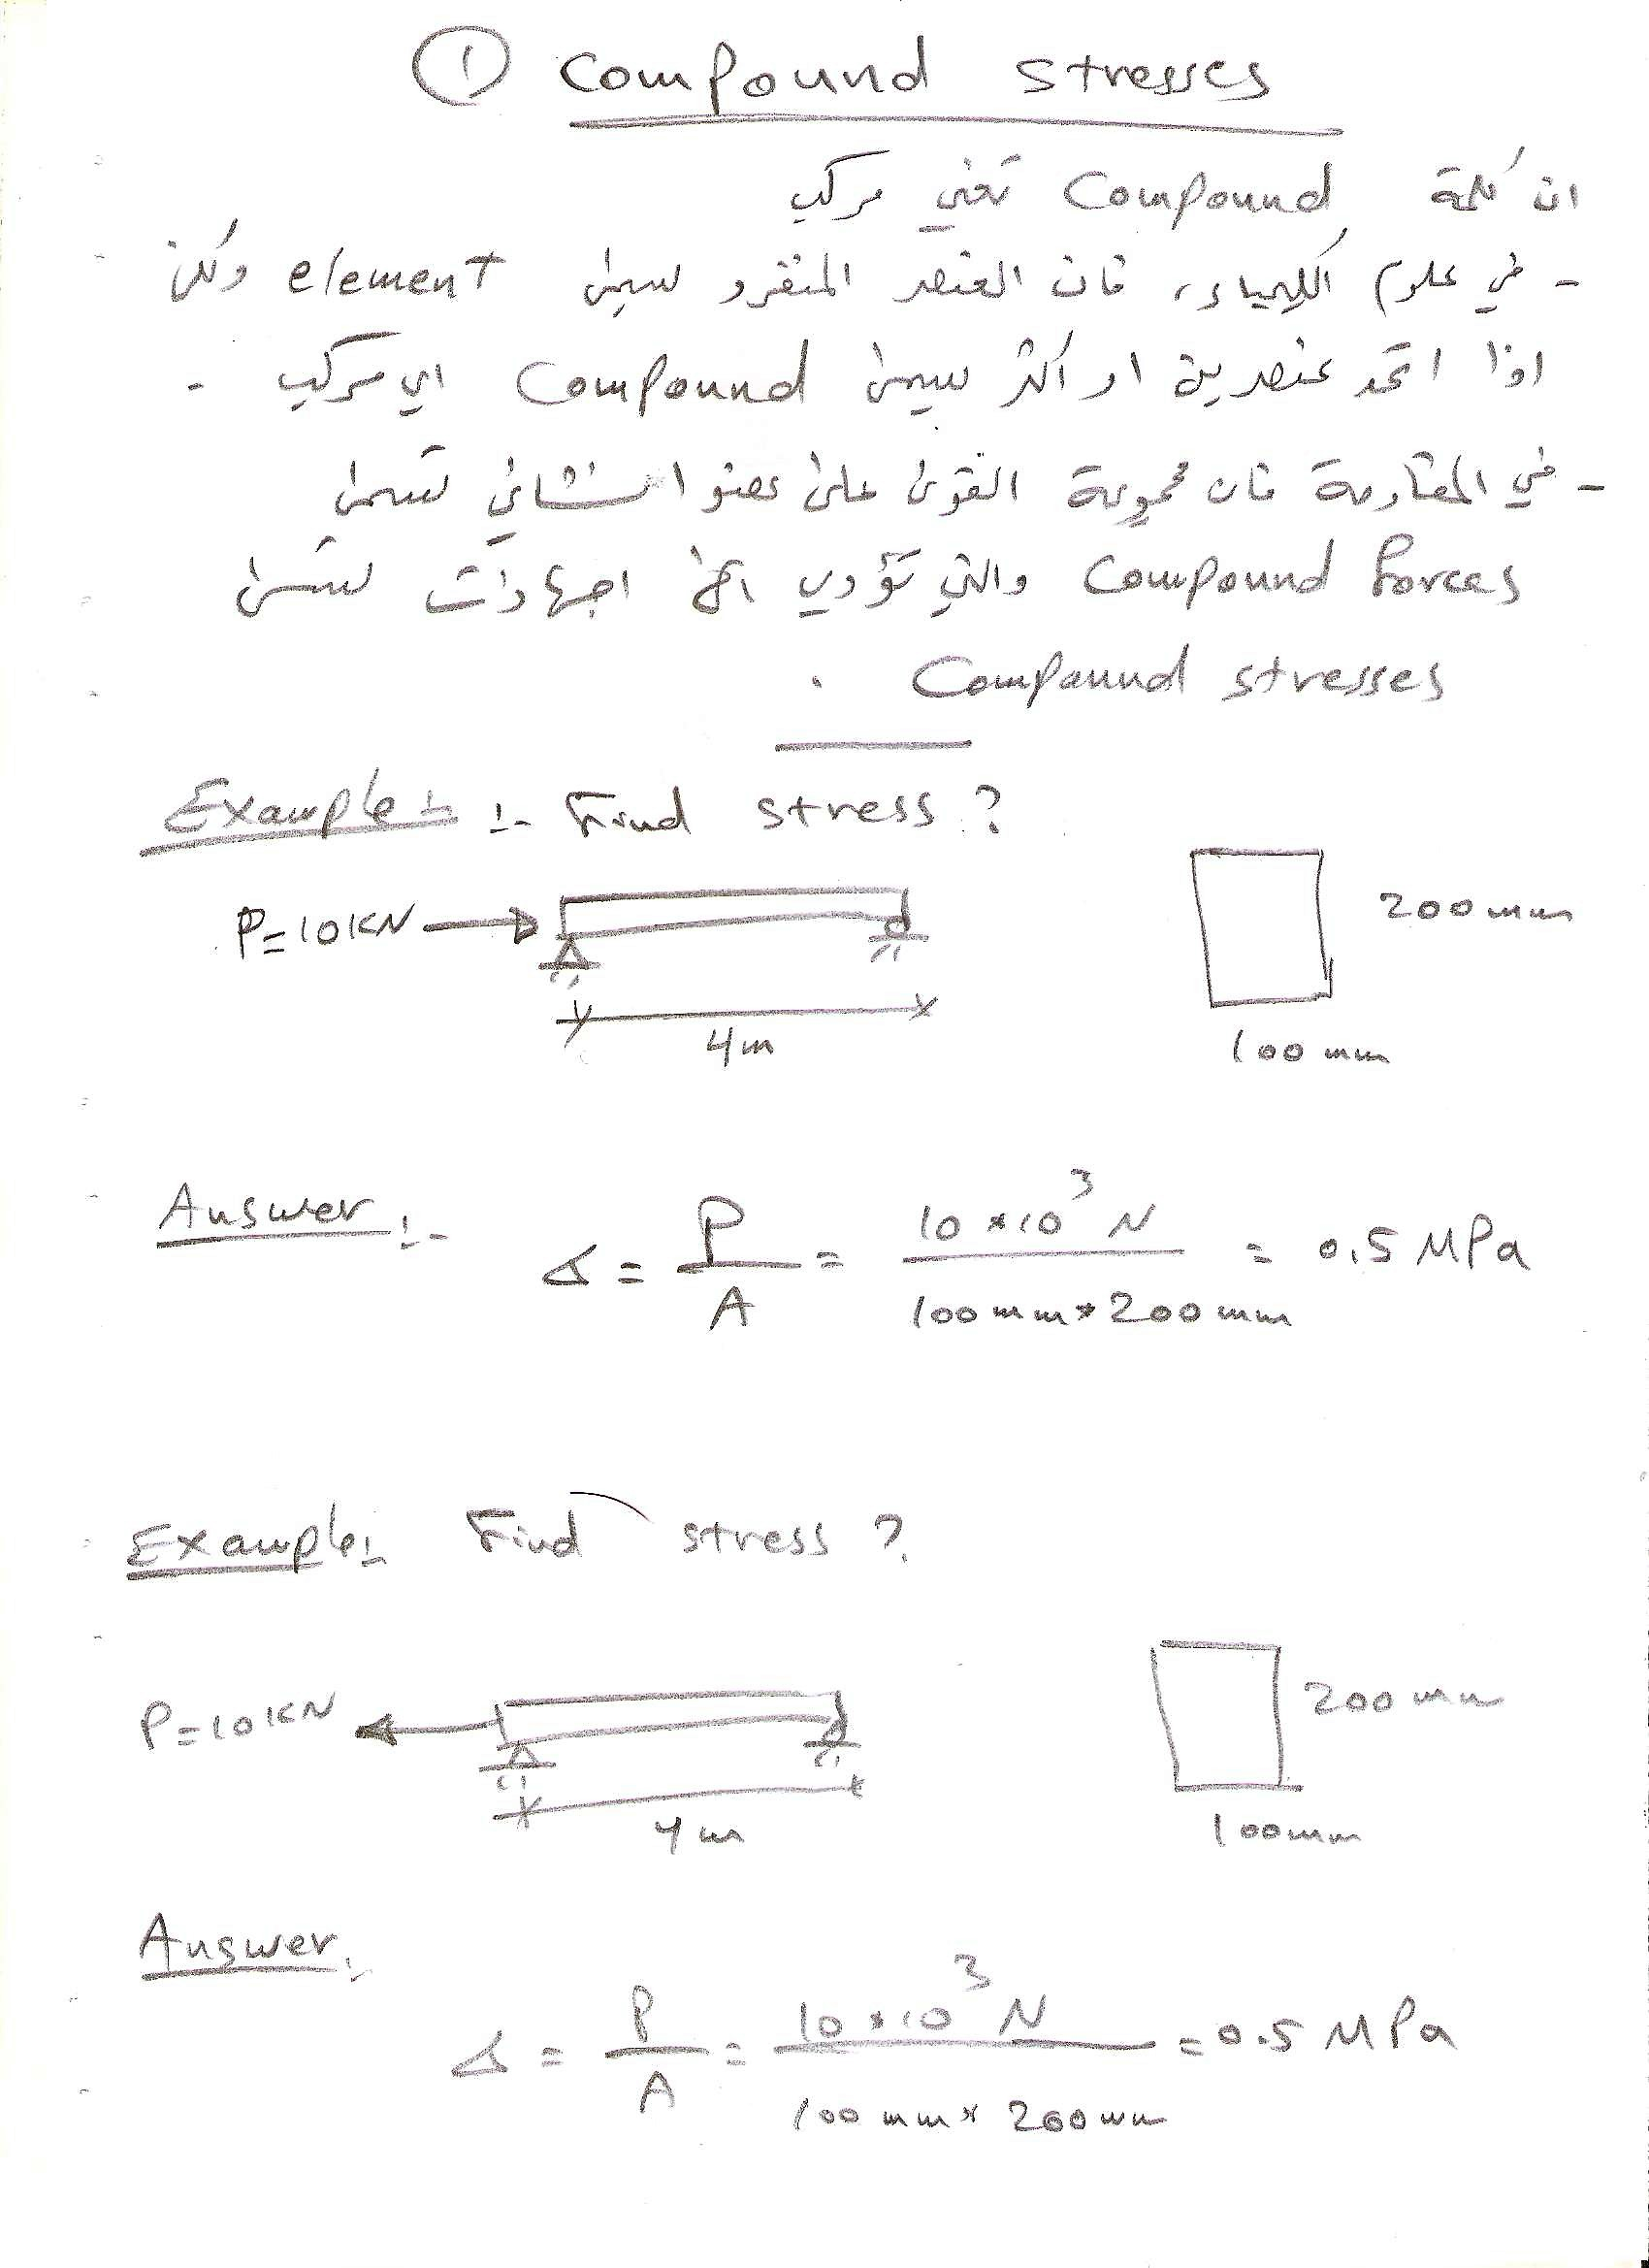 ① Compound stresses
ان كلمة Compound تعني مركب
- في علوم الكيمياء، فان العنصر المنفرد يسمى element ولكن
اذا اتحد عنصرين او اكثر يسمى Compound اي مركب .
- في المقاومة فان مجموعة القوى على عضو انشائي تسمى
Compound Forces والتي تؤدي الى اجهادات تسمى
Compound stresses .
Example :- Find stress ?
P=10KN
200mm
4m
100 mm
Answer :- σ = P/A = 10*10³ N / 100mm*200mm = 0.5 MPa
Example:- Find stress ?
P=10KN
200mm
4m
100mm
Answer:-
σ = P/A = 10*10³ N / 100mm*200mm = 0.5 MPa